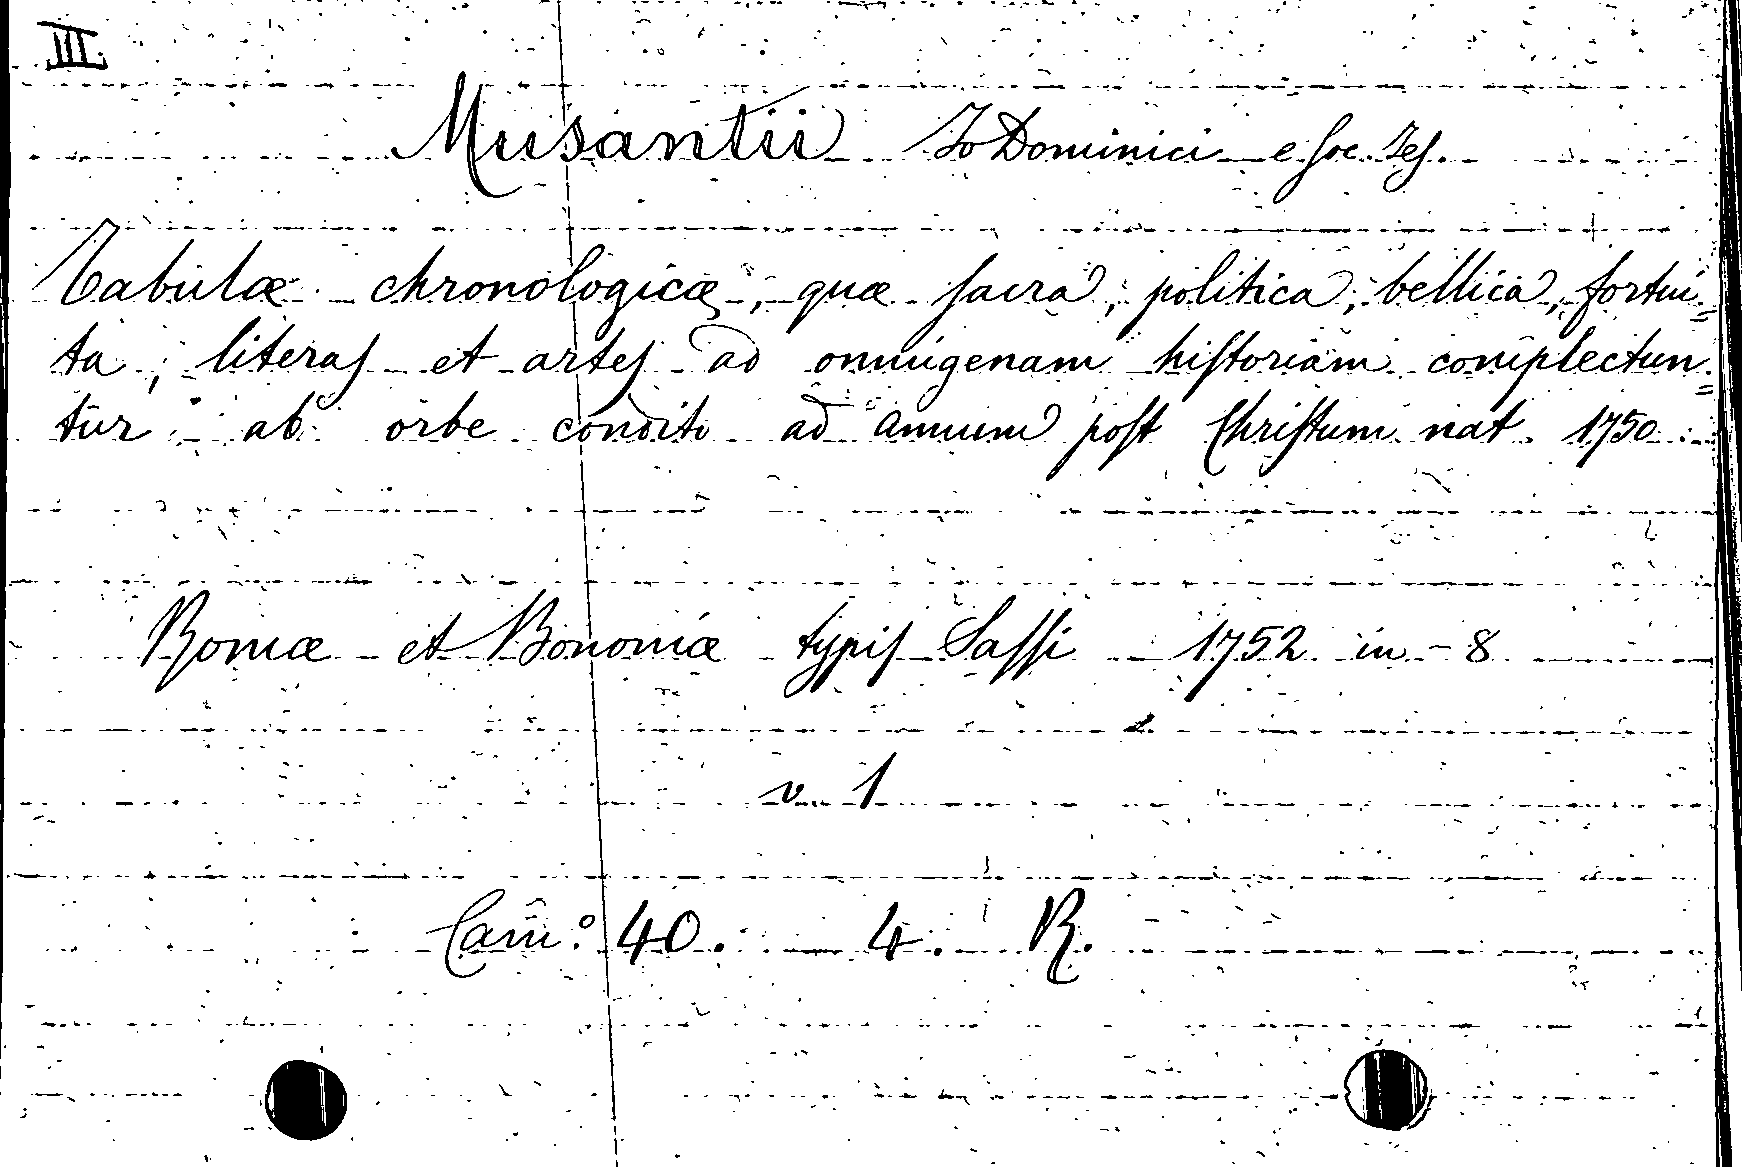 III.
Musantii Jo Dominici e Soc. Jes.
Tabulæ chronologicæ, quæ sacra, politica, bellica, fortui=
ta, literas et artes ad omnigenam historiam complectun=
tur ab orbe condito ad annum post Christum nat. 1750
Romæ et Bononiæ typis Sassi 1752 in-8
v. 1
Cam:º 40. 4. R.